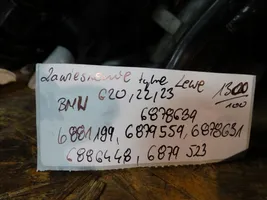 Zawieszenie tylne Lewe
1300
1000
BMW G20,22,23
6878639
6881199, 6879559, 6878631
6886448, 6879523